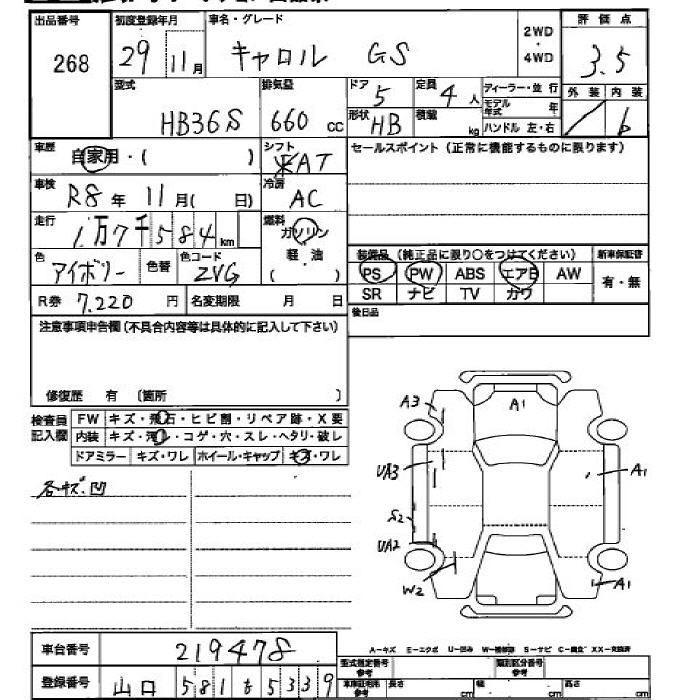 出品番号 初度登録年月 車名・グレード 2WD・4WD 評価点
268 29 11月 キャロル GS 3.5
型式 排気量 ドア 定員 ディーラー・並行 外装 内装
HB36S 660cc 5 4人 モデル年式 年 / 6
形状 HB 積載 kg ハンドル 左・右
車歴 自家用・( ) シフト AT セールスポイント(正常に機能するものに限ります)
車検 R8年 11月( 日) 冷房 AC
走行 1万7千584km 燃料 ガソリン 軽・油 ( )
色 アイボリー 色替 色コード ZVG
装備品(純正品に限り○をつけてください) 新車保証書
PS PW ABS エアB AW 有・無
SR ナビ TV カワ
R券 7,220円 名変期限 月 日 後日品
注意事項申告欄(不具合内容等は具体的に記入して下さい)
修復歴 有 〔箇所 〕
検査員記入欄 FW キズ・飛石・ヒビ割・リペア跡・X要
内装 キズ・汚レ・コゲ・穴・スレ・ヘタリ・破レ
ドアミラー キズ・ワレ ホイール・キャップ キズ・ワレ
各キズ.凹
A3 A1
UA3 A1
S2
UA2
W2 A1
A-キズ E-エクボ U-凹み W-補修跡 S-サビ C-腐蝕 XX-交換済
車台番号 219478
型式指定番号 参考 類別区分番号 参考
登録番号 山口 581 も 5339
車庫証明用 参考 長さ cm 幅 cm 高さ cm